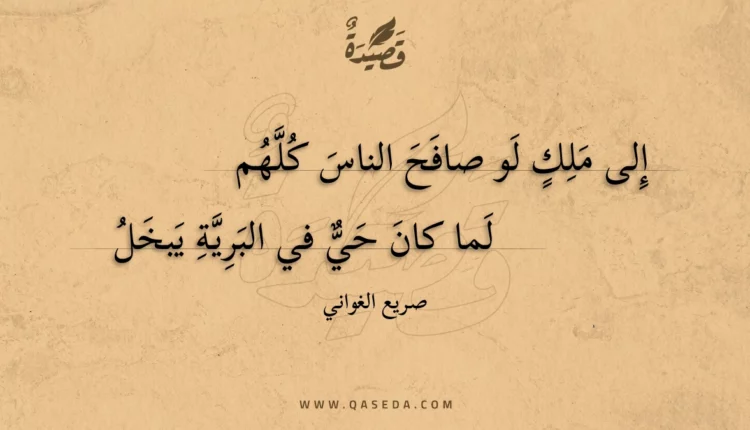 قَصِيْدَةٌ
إِلى مَلِكٍ لَو صافَحَ الناسَ كُلَّهُم
لَما كانَ حَيٌّ في البَرِيَّةِ يَبخَلُ
صريع الغواني
WWW.QASEDA.COM